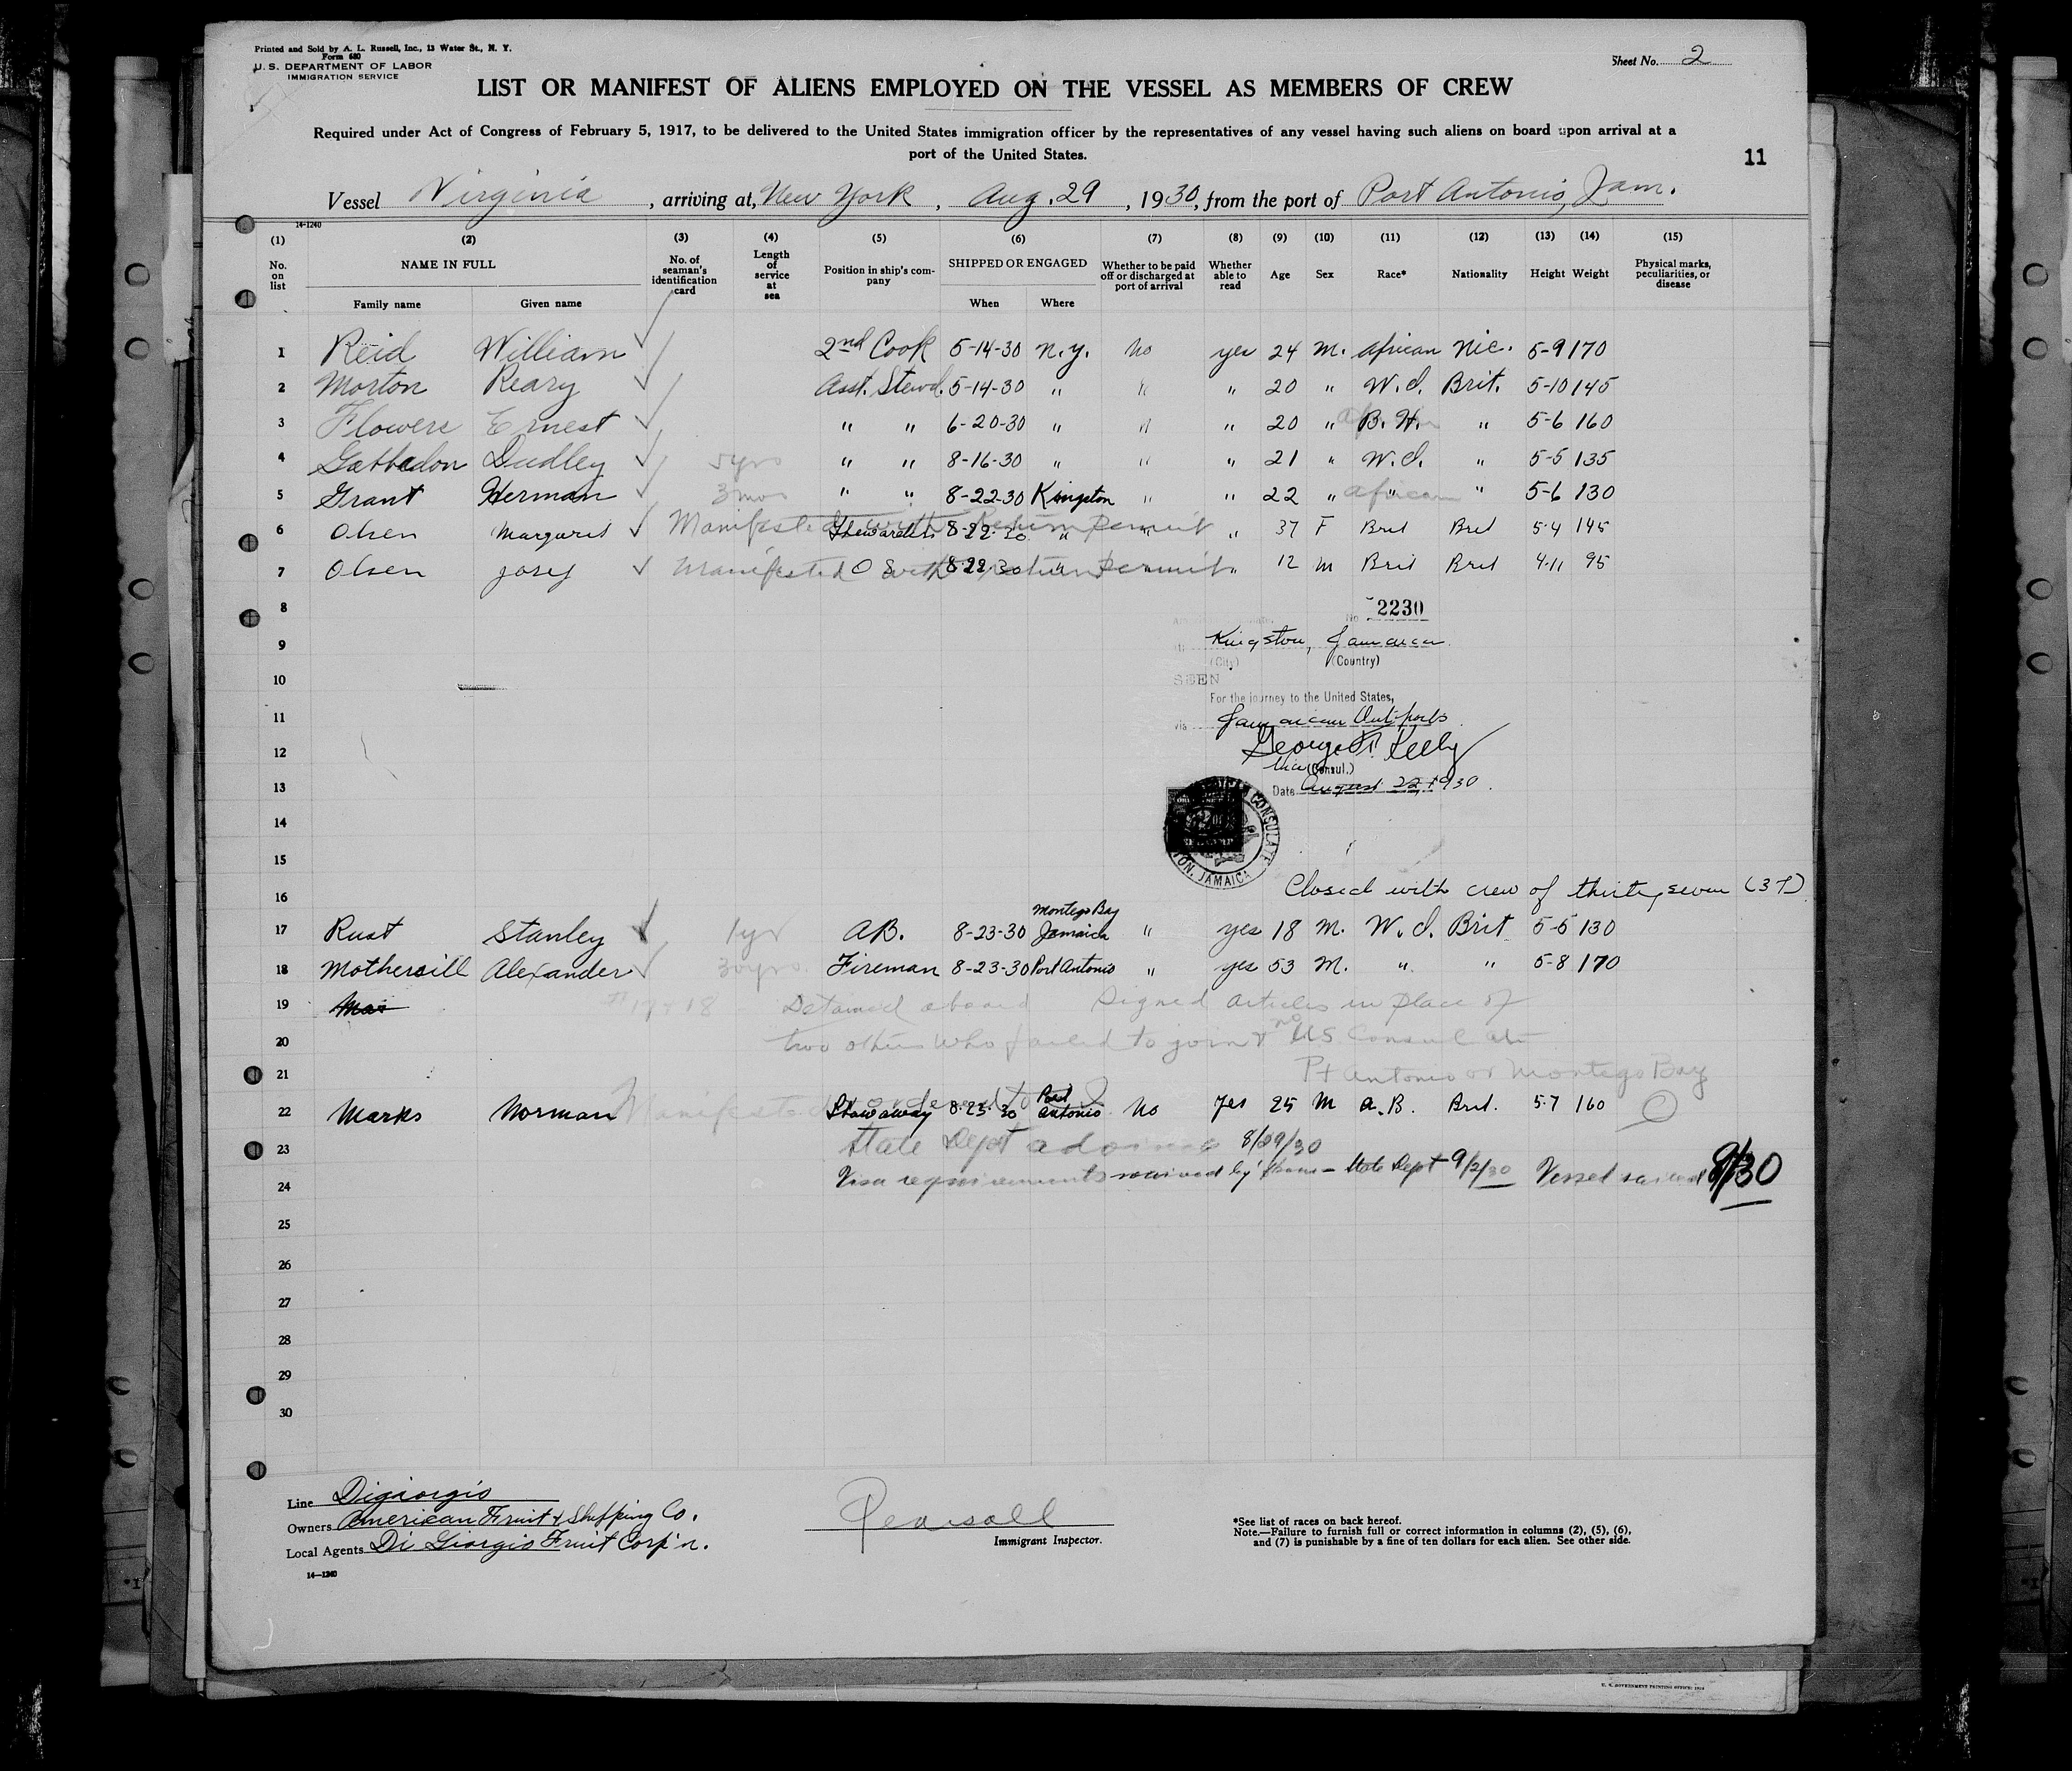 Printed and Sold by A. L. Russell, Inc., 13 Water St., N. Y.
Form 680
U. S. DEPARTMENT OF LABOR
IMMIGRATION SERVICE
Sheet No. 2
LIST OR MANIFEST OF ALIENS EMPLOYED ON THE VESSEL AS MEMBERS OF CREW
Required under Act of Congress of February 5, 1917, to be delivered to the United States immigration officer by the representatives of any vessel having such aliens on board upon arrival at a
port of the United States.
11
Vessel Virginia, arriving at, New York, Aug. 29, 1930, from the port of Port Antonio, Jam.
14-1240
(1) (2) (3) (4) (5) (6) (7) (8) (9) (10) (11) (12) (13) (14) (15)
No. on list NAME IN FULL No. of seaman's identification card Length of service at sea Position in ship's company SHIPPED OR ENGAGED Whether to be paid off or discharged at port of arrival Whether able to read Age Sex Race* Nationality Height Weight Physical marks, peculiarities, or disease
Family name Given name When Where
1 Reid William 2nd Cook 5-14-30 N.Y. No yes 24 M. African Nic. 5-9 170
2 Morton Reary Asst. Stewd. 5-14-30 " " " 20 " W.I. Brit. 5-10 145
3 Flowers Ernest " " 6-20-30 " " " 20 " B.H. " 5-6 160
4 Dudley 5yrs " " 8-16-30 " " " 21 " W.I. " 5-5 135
5 Grant Herman 3mos " " 8-22-30 Kingston " " 22 " African " " 5-6 130
6 Olsen Margaret Manifested with Return Permit Stewardess 8-22-30 " " " 37 F Brit Brit 5-4 145
7 Olsen Manifested with return Permit O S 8-22-30 " " " 12 M Brit Brit 4-11 95
8
No. 2230
9
Kingston, Jamaica
(City) (Country)
10
SEEN
For the journey to the United States,
11
via Jamaican Outports
12
George Kelly
Vice (Consul.)
13
Date August 22, 1930.
14
AMERICAN CONSULATE
KINGSTON, JAMAICA
15
16
Closed with crew of thirty seven (37)
17 Rust Stanley 1yr A.B. 8-23-30 Montego Bay Jamaica " yes 18 M. W.I. Brit 5-5 130
18 Mothersill Alexander 30yrs. Fireman 8-23-30 Port Antonio " yes 53 M. " " 5-8 170
19 Mar #17 & 18 Detained aboard Signed articles in place of
20 two others who failed to join & no US Consulate
21 Pt Antonio or Montego Bay
22 Marks Norman Manifested Stowaway 8-23-30 Port Antonio No Yes 25 M A.B. Brit. 5-7 160
23 State Dept 8/29/30
24 Visa requirements waived by phone - State Dept 9/2/30 Vessel sailed
25
26
27
28
29
30
Line Digiorgio
Owners American Fruit & Shipping Co.
Local Agents Di Giorgio Fruit Corp'n.
14-1240
Pearsall
Immigrant Inspector.
*See list of races on back hereof.
Note.—Failure to furnish full or correct information in columns (2), (5), (6),
and (7) is punishable by a fine of ten dollars for each alien. See other side.
U. S. GOVERNMENT PRINTING OFFICE: